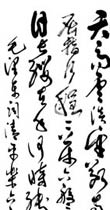 天高云淡望断
屈指行程二万六盘
日长缨在手何时缚
毛泽东词清平乐六